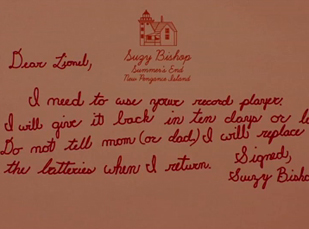 Suzy Bishop
Summer's End
New Penzance Island
Dear Lionel,
I need to use your record player.
I will give it back in ten days or
Do not tell mom (or dad.) I will replace
the batteries when I return. Signed,
Suzy Bishop